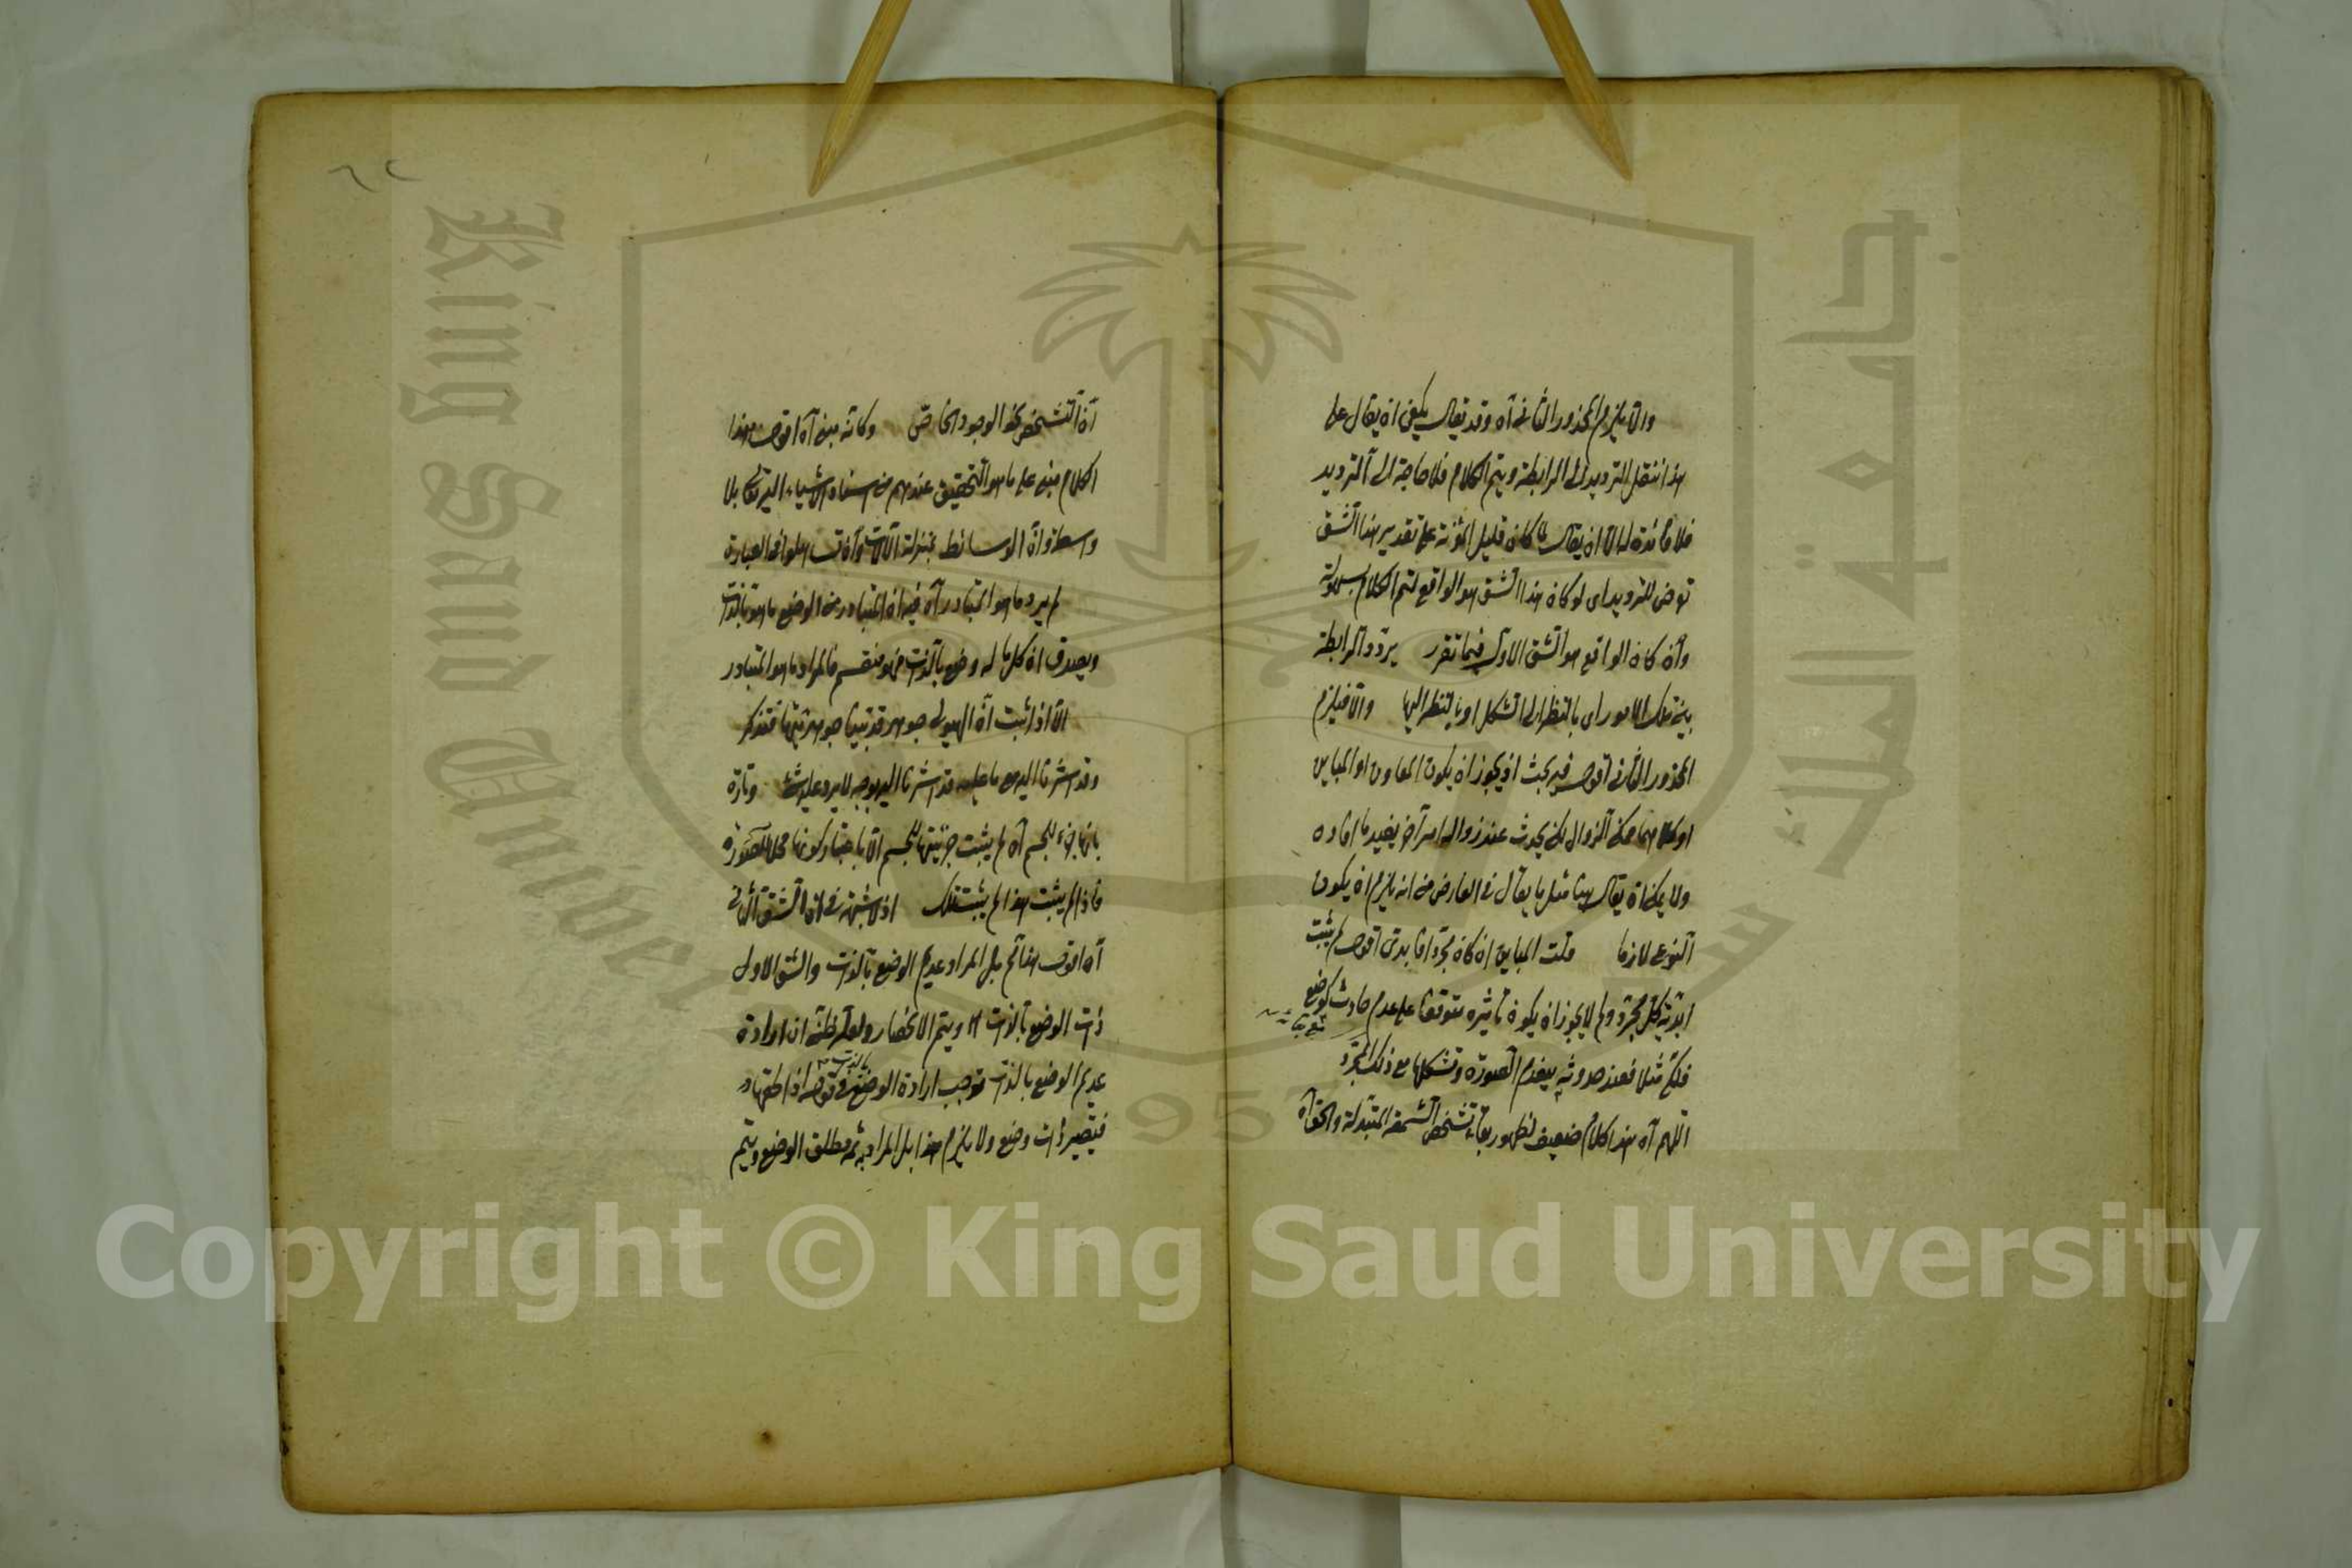 والا يلزم المحذور الثاني آه وقد يقال يكفي ان يقال على
هذا ننقل الترديد الى الرابطة ويتم الكلام فلا حاجة الى الترديد
فلا فائدة له الا ان يقال لما كان قليل المؤنة على تقدير هذا الشق
توض للترديد اى لو كان هذا الشق هو الواقع لتم الكلام بسهولة
وان كان الواقع هو الشق الاول فيما تقرر يردد الرابطة
بين تلك الامور اى بالنظر الى الشكل او بالنظر اليها والا فيلزم
المحذور الثاني اقول فيه بحث اذ يجوز ان يكون المعاون او المباين
او كلاهما ممكن الزوال لكن يحدث عند زواله امر آخر يفيد ما افاده
ولا يمكن ان يقال ههنا مثل ما يقال في العارض من انه يلزم ان يكون
النوعي لازما قلت المباين ان كان مجردا فابدى اقول لم يثبت
ابدية كل مجرد ولم لا يجوز ان يكون تأثيره متوقفا على عدم حادث كوضع
فلكي مثلا فعند حدوثه ينعدم الصورة وتشكلها مع ذلك المجرد
اللهم آه هذا كلام ضعيف لظهور بقاء تشخص الشمعة المتبدلة والحق آه
٦٢
ان التشخص نحو الوجود الخاص وكانه مبنى آه اقول هذا
الكلام مبنى على ما هو التحقيق عندهم من استناد الاشياء اليه تعالى بلا
واسطة وان الوسائط بمنزلة الآلات وان تساهلوا في العبارة
لم يرد ما هو المتبادر آه فيه ان المتبادر من الوضع ما هو بالذات
ويصدق ان كل ما له وضع بالذات فهو منقسم فالمراد ما هو المتبادر
الا اذا ثبت ان الهيولى جوهر قد بينا جوهريتها فتذكر
وقد اشرنا اليه مع ما عليه قد اشرنا اليه بوجه لا يرد عليه شئ وتارة
بانها جزء للجسم آه لم يثبت جزئيتها للجسم الا باعتبار كونها محلا للصورة
فاذا لم يثبت هذا لم يثبت تلك اذ لا شبهة في ان الشق الثاني
آه اقول هذا لم بل المراد عديم الوضع بالذات والشق الاول
ذات الوضع بالذات ويتم الانحصار ولعله ظن ان ارادة
عديم الوضع بالذات توجب ارادة الوضع بالذات في قوله اذا لحقها
فتصير ذات وضع ولا يلزم هذا بل المراد به ثمه مطلق الوضع ويتم
جامعة الملك
King Saud Univer
957
Copyright © King Saud University